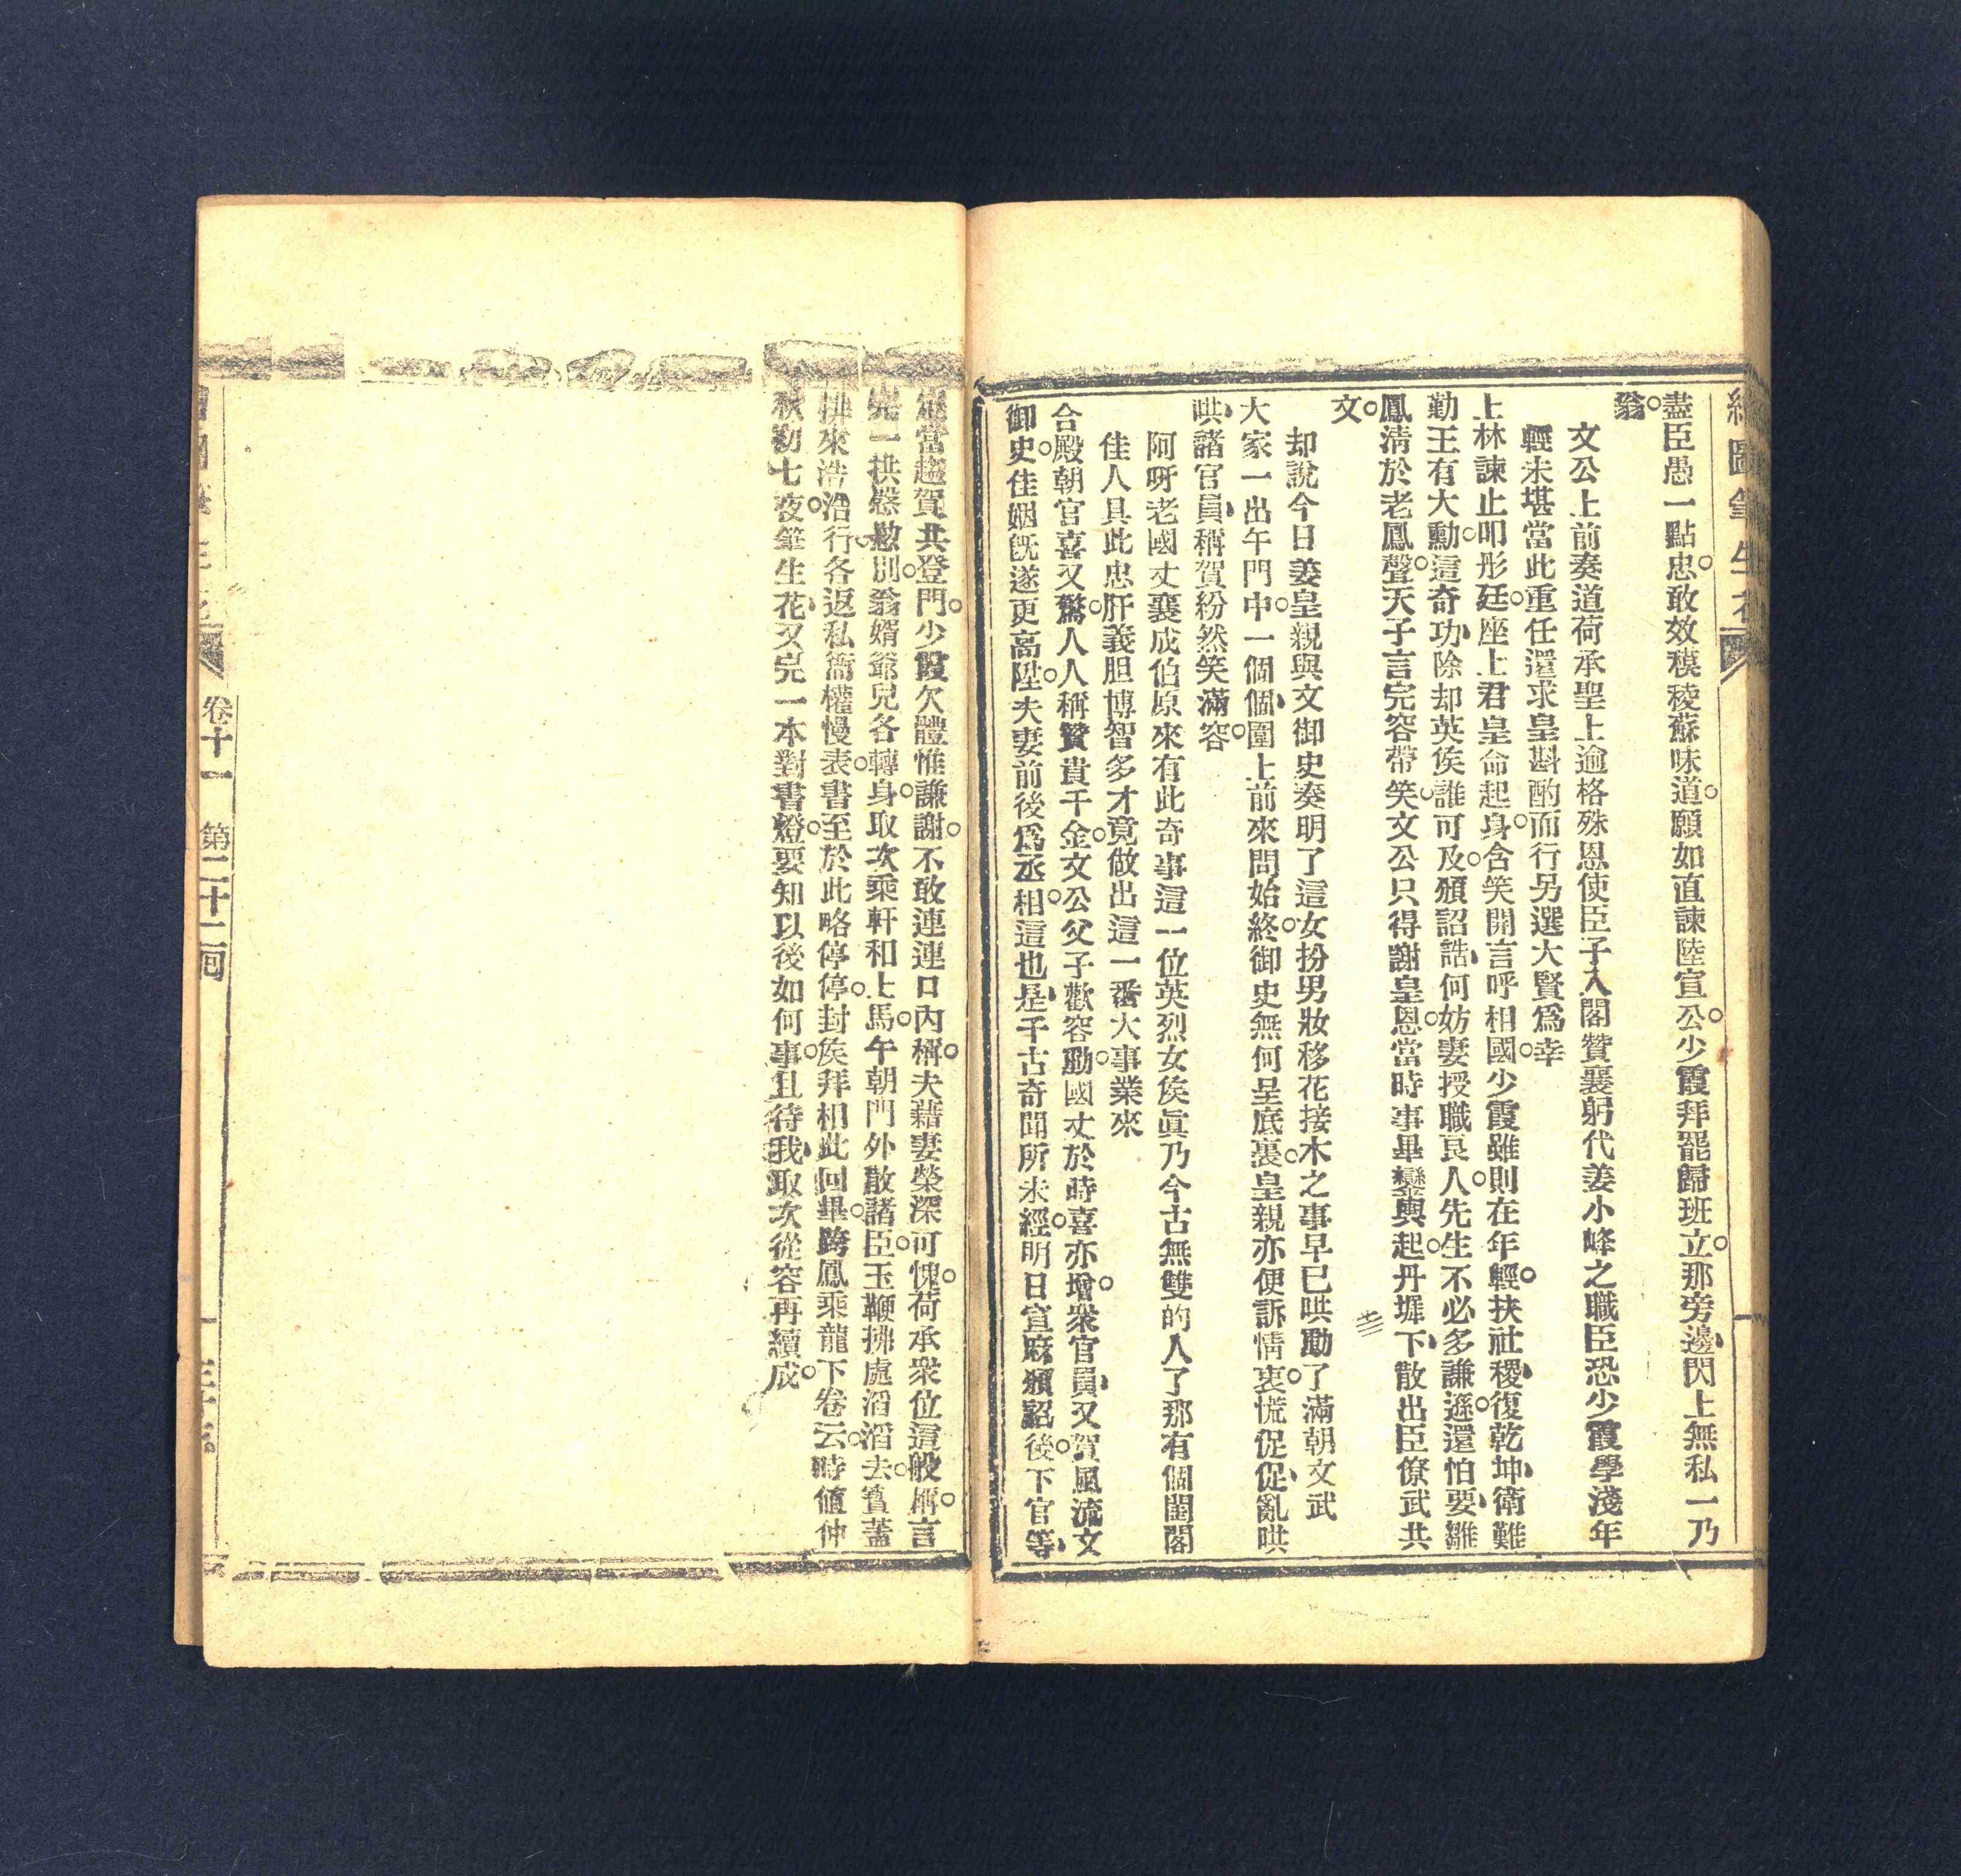 繪圖筆生花
盡臣愚一點忠敢效模稜蘇味道願如直諫陸宣公少霞拜罷歸班立那旁邊閃上無私一乃
翁
文公上前奏道荷承聖上逾格殊恩使臣子入閣贊襄躬代姜小峰之職臣恐少霞學淺年
輕未堪當此重任還求皇斟酌而行另選大賢為幸
上林諫止叩彤廷座上君皇命起身含笑開言呼相國少霞雖則在年輕扶社稷復乾坤衛難
勤王有大勳這奇功除却英侯誰可及頒詔誥何妨妻授職良人先生不必多謙遜還怕要雛
鳳清於老鳳聲天子言完容帶笑文公只得謝皇恩當時事畢鑾輿起丹墀下散出臣僚武共
文
却說今日姜皇親與文御史奏明了這女扮男妝移花接木之事早已哄動了滿朝文武
大家一出午門中一個個圍上前來問始終御史無何呈底裏皇親亦便訴情衷慌促促亂哄
哄諸官員稱賀紛然笑滿容
阿呀老國丈襄成伯原來有此奇事這一位英烈女侯眞乃今古無雙的人了那有個閨閣
佳人具此忠肝義胆博智多才竟做出這一番大事業來
合殿朝官喜又驚人人稱贊貴千金文公父子歡容動國丈於時喜亦增衆官員又賀風流文
御史佳姻旣遂更高陞夫妻前後爲丞相這也是千古奇聞所未經明日宣麻頒詔後下官等
定當趨賀共登門少霞欠體惟謙謝不敢連連口內稱夫藉妻榮深可愧荷承衆位這般稱言
完一拱慇懃別翁婿爺兒各轉身取次乘軒和上馬午朝門外散諸臣玉鞭拂處滔滔去寶蓋
排來浩浩行各返私衙權慢表書至於此略停停封侯拜相此回畢跨鳳乘龍下卷云時値仲
秋初七夜筆生花又完一本對書燈要知以後如何事且待我取次從容再續成
卷十一　第二十二回